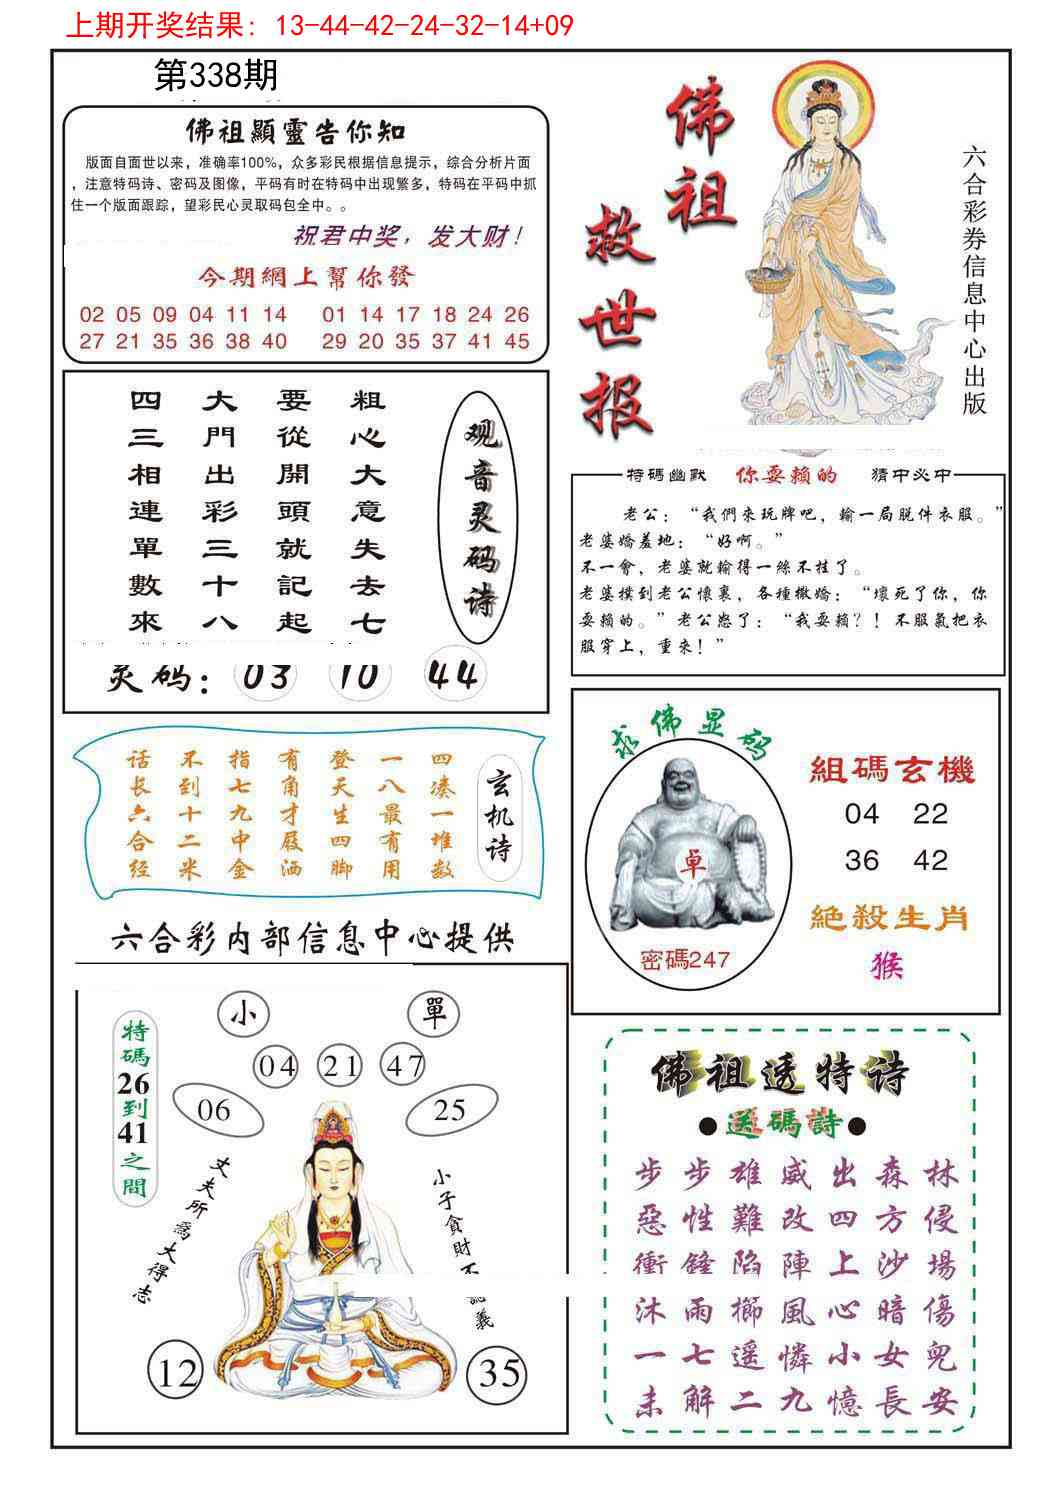 上期开奖结果：13-44-42-24-32-14+09
第338期
佛祖顯靈告你知
版面自面世以来，准确率100%，众多彩民根据信息提示，综合分析片面
，注意特码诗、密码及图像，平码有时在特码中出现繁多，特码在平码中抓
住一个版面跟踪，望彩民心灵取码包全中。。
祝君中奖，发大财！
今期網上幫你發
02 05 09 04 11 14 01 14 17 18 24 26
27 21 35 36 38 40 29 20 35 37 41 45
佛祖
救世报
六合彩券信息中心出版
观音灵码诗
粗心大意失去七
要從開頭就記起
大門出彩三十八
四三相連單數來
灵码：03 10 44
特碼幽默 你耍賴的 猜中必中
老公：“我們來玩牌吧，輸一局脱件衣服。”
老婆嬌羞地：“好啊。”
不一會，老婆就輸得一絲不挂了。
老婆撲到老公懷裏，各種撒嬌：“壞死了你，你
耍賴的。”老公怒了：“我耍賴？！不服氣把衣
服穿上，重來！”
玄机诗
四凑一堆数
一八最有用
登天生四脚
有角才屐洒
指七九中金
不到十二米
话长六合经
求佛显码
卓
密碼247
組碼玄機
04 22
36 42
絕殺生肖
猴
六合彩内部信息中心提供
特碼26到41之間
小 單
04 21 47
06 25
丈夫所爲大得志
小子貪財不義
12 35
佛祖透特诗
●送碼詩●
步步雄威出森林
惡性難改四方侵
衝鋒陷陣上沙場
沐雨櫛風心暗傷
一七遥憐小女兒
未解二九憶長安